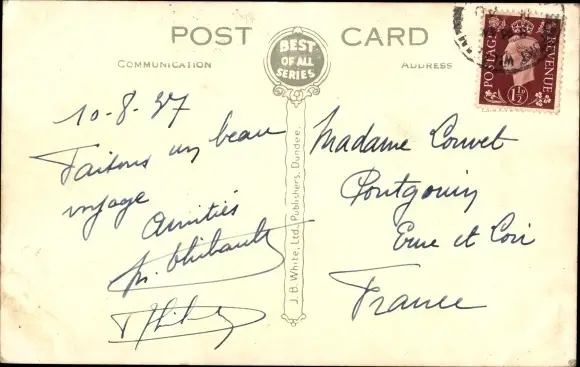 POST CARD
BEST
OF ALL
SERIES
COMMUNICATION
ADDRESS
POSTAGE
REVENUE
1½D
10-8-37
Faisons un beau
voyage
Amitiés
M. Thibault
Madame Louvet
Pontgouin
Eure et Loir
France
J. B. White, Ltd., Publishers, Dundee.